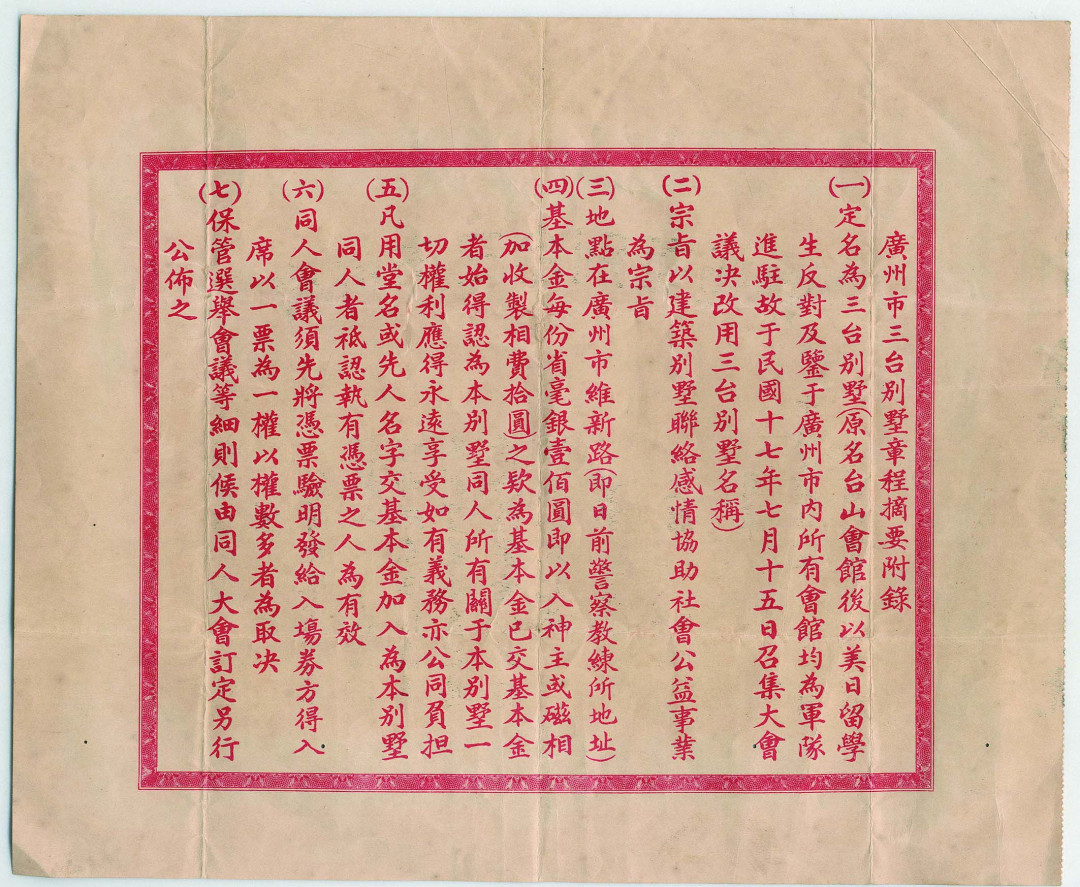 廣州市三台別墅章程摘要附錄
(一)定名為三台別墅(原名台山會館後以美日留學
生反對及鑒于廣州市內所有會館均為軍隊
進駐故于民國十七年七月十五日召集大會
議决改用三台別墅名稱)
(二)宗旨以建築別墅聯絡感情協助社會公益事業
為宗旨
(三)地點在廣州市維新路(即日前警察教練所地址)
(四)基本金每份省毫銀壹佰圓即以入神主或磁相
(加收製相費拾圓)之欵為基本金已交基本金
者始得認為本別墅同人所有關于本別墅一
切權利應得永遠享受如有義務亦公同負担
(五)凡用堂名或先人名字交基本金加入為本別墅
同人者祗認執有憑票之人為有效
(六)同人會議須先將憑票驗明發給入場券方得入
席以一票為一權以權數多者為取决
(七)保管選舉會議等細則候由同人大會訂定另行
公佈之